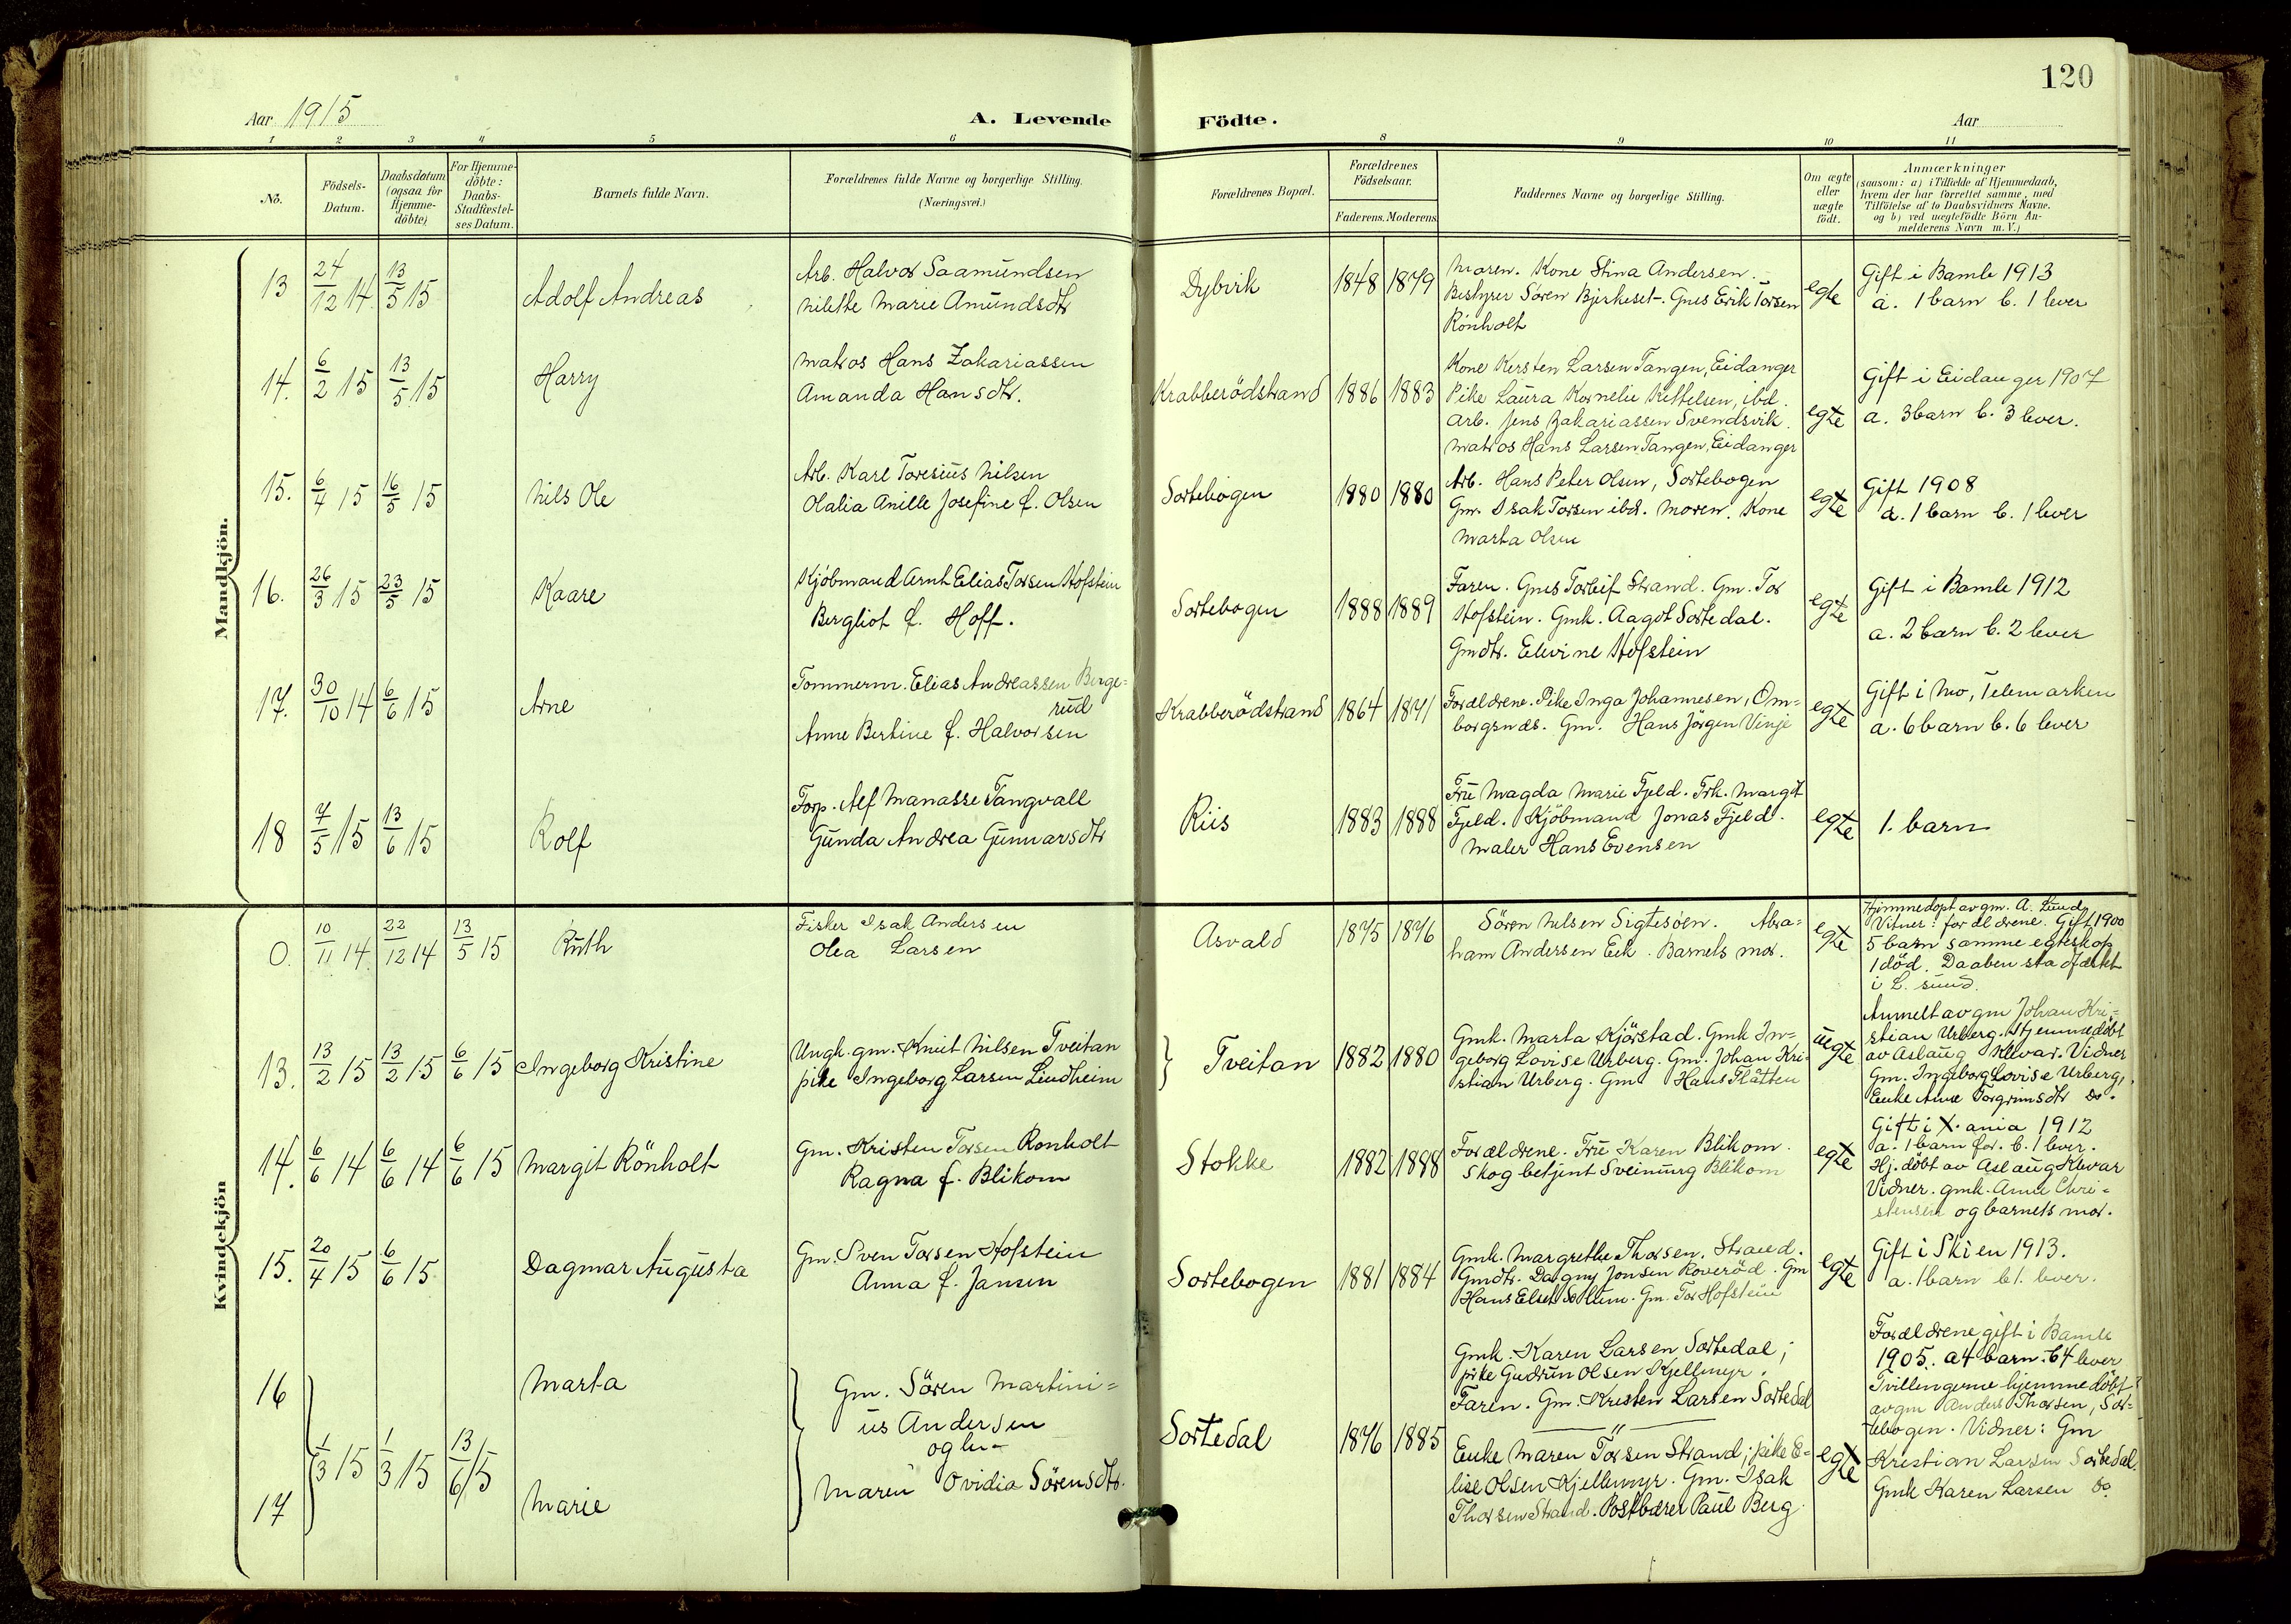 120
Aar 1915
A. Levende
Födte.
Aar
1 2 3 4 5 6 8 9 10 11
No.
Födsels-
Datum.
Daabsdatum
(ogsaa for
Hjemme-
döbte)
For Hjemme-
döbte:
Daabs-
Stadfæstel-
ses Datum.
Barnets fulde Navn.
Forældrenes fulde Navne og borgerlige Stilling.
(Næringsvei.)
Forældrenes Bopæl.
Forældrenes
Födselsaar.
Faderens. Moderens
Faddernes Navne og borgerlige Stilling.
Om ægte
eller
uægte
födt.
Anmærkninger
(saasom: a) i Tilfælde af Hjemmedaab,
hvem der har forrettet samme, med
Tilföielse af to Daabsvidners Navne.
og b) ved uægtefödte Börn An-
melderens Navn m. V.)
Mandkjön.
13 24/12 14. 13/5 15 Adolf Andreas
Arb. Halvor Saamundsen
Nilette Marie Amundsdtr
Dybvik 1848 1879
Moren. Kone Stina Andersen.
Bestyrer Sören Bjerkeset. Gmes Erik Torsen
Rönholt
egte
Gift i Bamle 1913
a. 1 barn b. 1 lever
14. 6/2 15 13/5 15 Harry
Matros Hans Zakariassen
Amanda Hansdtr.
Krabberödstrand 1886 1883
Kone Kersten Larsen Tangen, Eidanger
Pike Laura Kornelie Kittelsen, ibd.
Arb. Jens Zakariassen Svendsvik.
Matros Hans Larsen Tangen, Eidanger
egte
Gift i Eidanger 1907
a. 3 barn b. 3 lever.
15. 6/4 15 16/5 15 Nils Ole
Arb. Karl Toresius Nilsen
Olalia Anille Josefine f. Olsen
Sortebogen 1880 1880
Arb. Hans Peter Olsen, Sortebogen
Gm. Isak Torsen ibd. Moren. Kone
Marta Olsen
egte
Gift 1908
a. 1 barn b. 1 lever
16. 26/3 15 23/5 15 Kaare
Kjöbmand Arnt Elias Torsen Hofstein
Bergliot f. Hoff.
Sortebogen 1888 1889
Faren. Gmes Torleif Strand. Gm. Tor
Hofstein. Gmk. Aagot Sortedal.
Gmdtr. Elevine Hofstein
egte
Gift i Bamle 1912
a. 2 barn b. 2 lever
17. 30/10 14 6/6 15 Arne
Tommerm. Elias Andreassen Berge-
rud
Anne Bertine f. Halvorsen
Krabberödstrand 1864 1871
Forældrene. Pike Inga Johannesen, Om-
borgsnæs. Gm. Hans Jörgen Vinje
egte
Gift i Mo, Telemarken
a. 6 barn b. 6 lever
18 7/5 15 13/6 15 Rolf
Forp. Alf Manasse Tangvall
Gunda Andrea Gunnarsdtr
Riis 1883 1888
Fru Magda Marie Fjeld. Frk. Margit
Fjeld. Kjöbmand Jonas Fjeld.
Maler Hans Evensen
egte
1. barn
Kvindekjön
0. 10/11 14 22/12 14 13/5 15 Ruth
Fisker Isak Andersen
Olea Larsen
Asvald 1875 1876
Sören Nilsen Sigtesöen. Abra-
ham Andersen Eek. Barnets mor.
egte
Hjemmedöpt av gm. A. Lund
Vitner: forældrene. Gift 1900
5 barn samme egteskap
1 död. Daaben stadfæstet
i L. sund.
13. 13/2 15 13/2 15 6/6 15 Ingeborg Kristine
Ungk. gm. Knut Nilsen Tveitan
pike Ingeborg Larsen Lindheim
Tveitan 1882 1880
Gmk. Marta Kjörstad. Gmk In-
geborg Lovise Urberg. Gm. Johan Kri-
stian Urberg. Gm Hans Flåtten
uegte
Anmelt av gm Johan Kri-
stian Urberg. Hjemmedöbt
av Aslaug Klevar. Vidner
Gm. Ingeborg Lovise Urberg,
Enke Anne Torgrimsdtr do.
14. 6/6 14 6/6 14 6/6 15 Margit Rönholt
Gm. Kristen Torsen Ronholt
Ragna f. Blikom
Stokke 1882 1888
Forældrene. Fru Karen Blikom.
Skogbetjent Sveinung Blikom
egte
Gift i X.ania 1912
a. 1 barn för. b. 1 lever.
Hj. döbt av Aslaug Klevar
Vidner. gmk. Anne Chri-
stensen og barnets mor.
15. 20/4 15 6/6 15 Dagmar Augusta
Gm. Sven Torsen Hofstein
Anna f. Jansen
Sortebogen 1881 1884
Gmk. Margrethe Thorsen, Strand.
Gmdtr. Dagny Jonsen Roveröd. Gm
Hans Elset Solum. Gm. Tor Hofstein
egte
Gift i Skien 1913.
a. 1 barn b 1. lever.
16 Marta
1/3 15 1/3 15 13/6 15
17 Marie
Gm. Sören Martini-
us Andersen
og hu-
Maren Ovidia Sörensdtr.
Sortedal 1876 1885
Gmk. Karen Larsen Sortedal;
pike Gudrun Olsen Kjellmyr.
Faren. Gm. Kristen Larsen Sortedal
"
Enke Maren Torsen Strand; pike E-
lise Olsen Kjellmyr. Gm. Isak
Thorsen Strand. Postbærer Paul Berg
egte
Forældrene gift i Bamle
1905. a 4 barn. b 4 lever
Tvillingerne hjemmedöbt
av gm Anders Thorsen, Sor-
tebogen. Vidner: Gm
Kristian Larsen Sortedal.
Gmk Karen Larsen do.